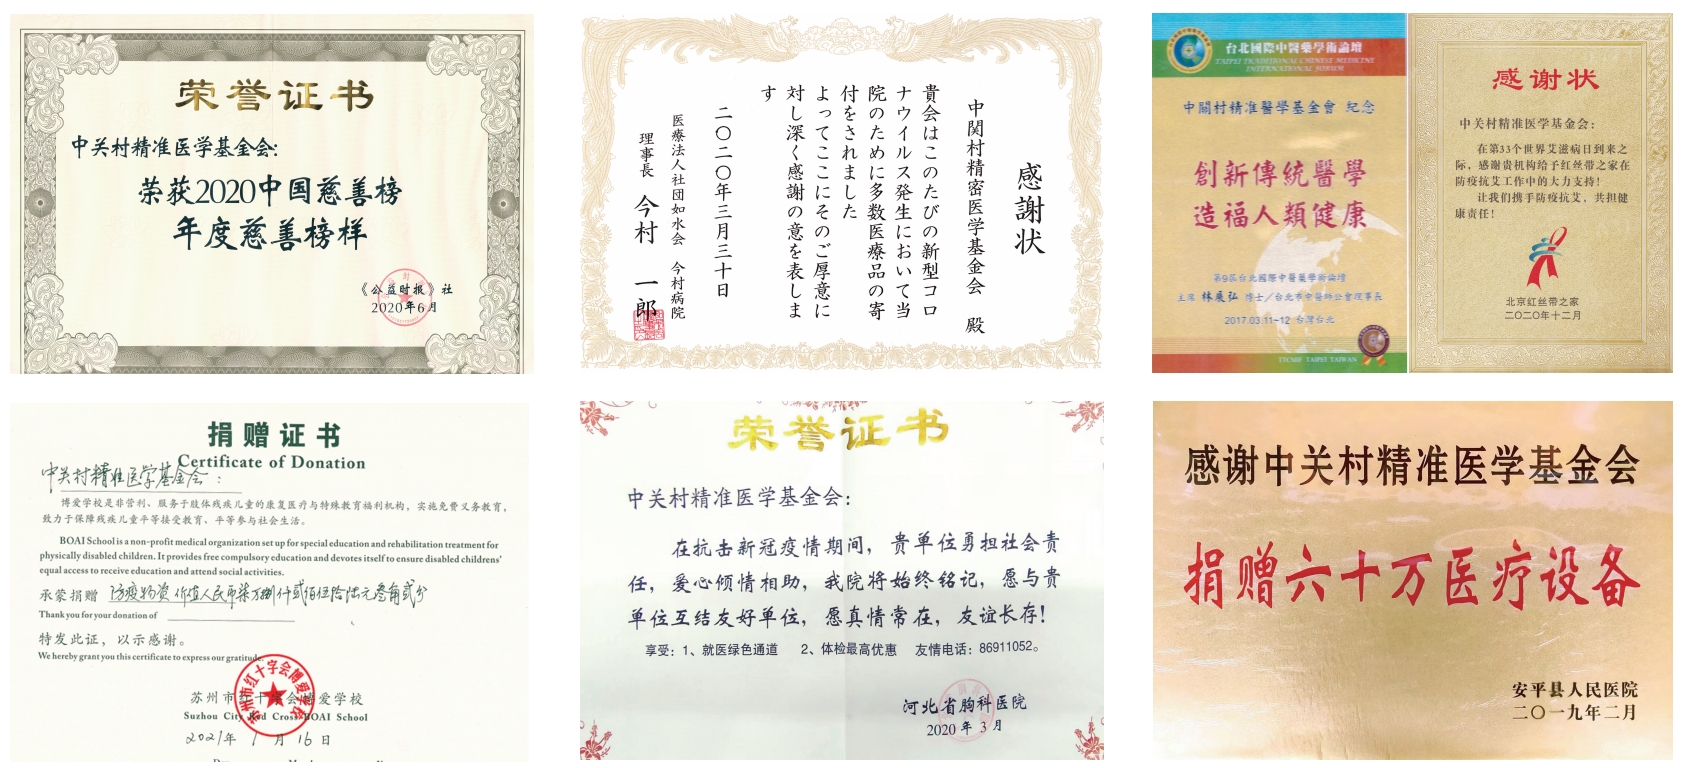 荣誉证书
中关村精准医学基金会：
荣获2020中国慈善榜
年度慈善榜样
《公益时报》社
2020年6月
感謝状
中関村精密医学基金会　殿
貴会はこのたびの新型コロ
ナウイルス発生において当
院のために多数医療品の寄
付をされました
よってここにそのご厚意に
対し深く感謝の意を表しま
す
二〇二〇年三月三十日
医療法人社団如水会　今村病院
理事長　今村　一郎
台北國際中醫藥學術論壇
TAIPEI TRADITIONAL CHINESE MEDICINE
INTERNATIONAL FORUM
中關村精准醫學基金會 紀念
創新傳統醫學
造福人類健康
第9屆台北國際中醫藥學術論壇
主席 林展弘 博士／台北市中醫師公會理事長
2017.03.11~12 台灣台北
TTCMIF TAIPEI TAIWAN
感谢状
中关村精准医学基金会：
在第33个世界艾滋病日到来之
际，感谢贵机构给予红丝带之家在
防疫抗艾工作中的大力支持！
让我们携手防疫抗艾，共担健
康责任！
北京红丝带之家
二〇二〇年十二月
捐赠证书
Certificate of Donation
中关村精准医学基金会：
博爱学校是非营利、服务于肢体残疾儿童的康复医疗与特殊教育福利机构，实施免费义务教育，
致力于保障残疾儿童平等接受教育、平等参与社会生活。
BOAI School is a non-profit medical organization set up for special education and rehabilitation treatment for
physically disabled children. It provides free compulsory education and devotes itself to ensure disabled children'
equal access to receive education and attend social activities.
承蒙捐赠 防疫物资价值人民币柒万捌仟贰佰伍拾陆元叁角贰分
Thank you for your donation of
特发此证，以示感谢。
We hereby grant you this certificate to express our gratitude.
苏州市红十字会博爱学校
Suzhou City Red Cross BOAI School
2021年 1 月 16 日
荣誉证书
中关村精准医学基金会：
在抗击新冠疫情期间，贵单位勇担社会责
任，爱心倾情相助，我院将始终铭记，愿与贵
单位互结友好单位，愿真情常在，友谊长存！
享受：1、就医绿色通道　2、体检最高优惠　友情电话：86911052。
河北省胸科医院
2020 年 3 月
感谢中关村精准医学基金会
捐赠六十万医疗设备
安平县人民医院
二〇一九年二月